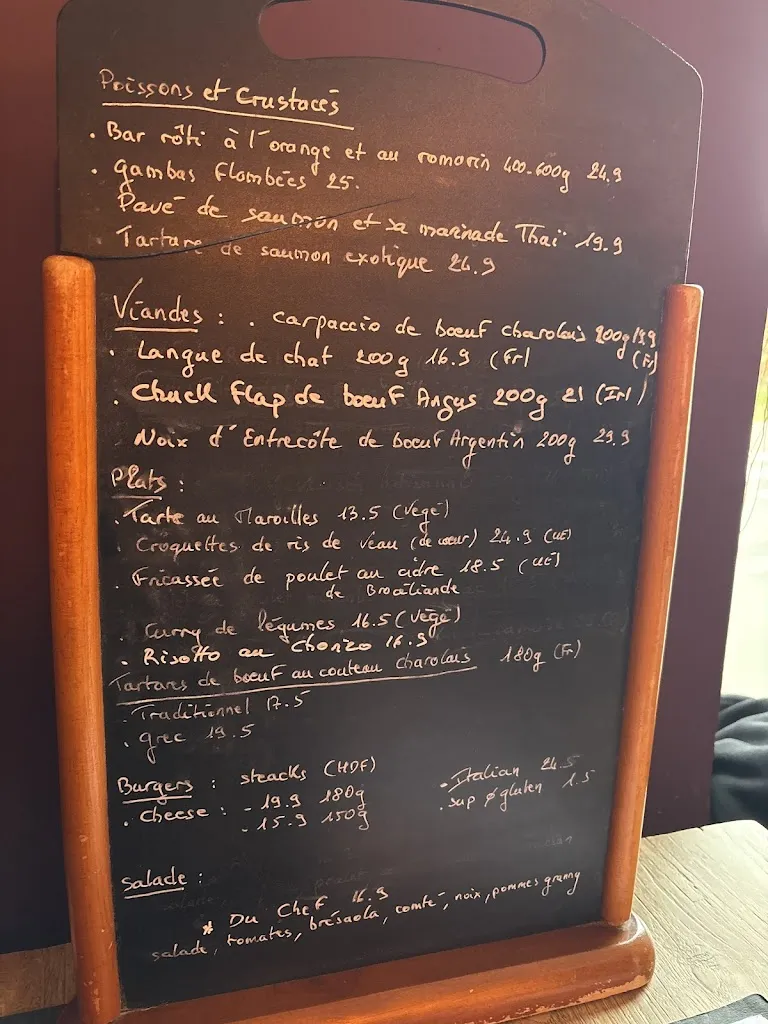 Poissons et Crustacés
. Bar rôti à l'orange et au romarin 400-600g 24.9
. gambas Flambées 25.
Pavé de saumon et sa marinade Thaï 19.9
Tartare de saumon exotique 24.9
Viandes : . Carpaccio de bœuf charolais 200g 19.9 (Fr)
. Langue de chat 200g 16.9 (Fr)
. Chuck Flap de bœuf Angus 200g 21 (Irl)
Noix d'Entrecôte de bœuf Argentin 200g 29.9
Plats :
. Tarte au Maroilles 13.5 (végé)
. Croquettes de ris de veau (de cœur) 24.9 (UE)
. Fricassée de poulet au cidre 18.5 (UE)
de Brocéliande
. Curry de légumes 16.5 (végé)
. Risotto au Chorizo 16.9
Tartares de bœuf au couteau charolais 180g (Fr)
. Traditionnel 17.5
. grec 19.5
Burgers : steacks (HDF)
. Cheese : - 19.9 180g
- 15.9 150g
. Italian 24.5
. sup ø gluten 1.5
Salade :
* Du Chef 16.9
salade, tomates, brésaola, comté, noix, pommes granny